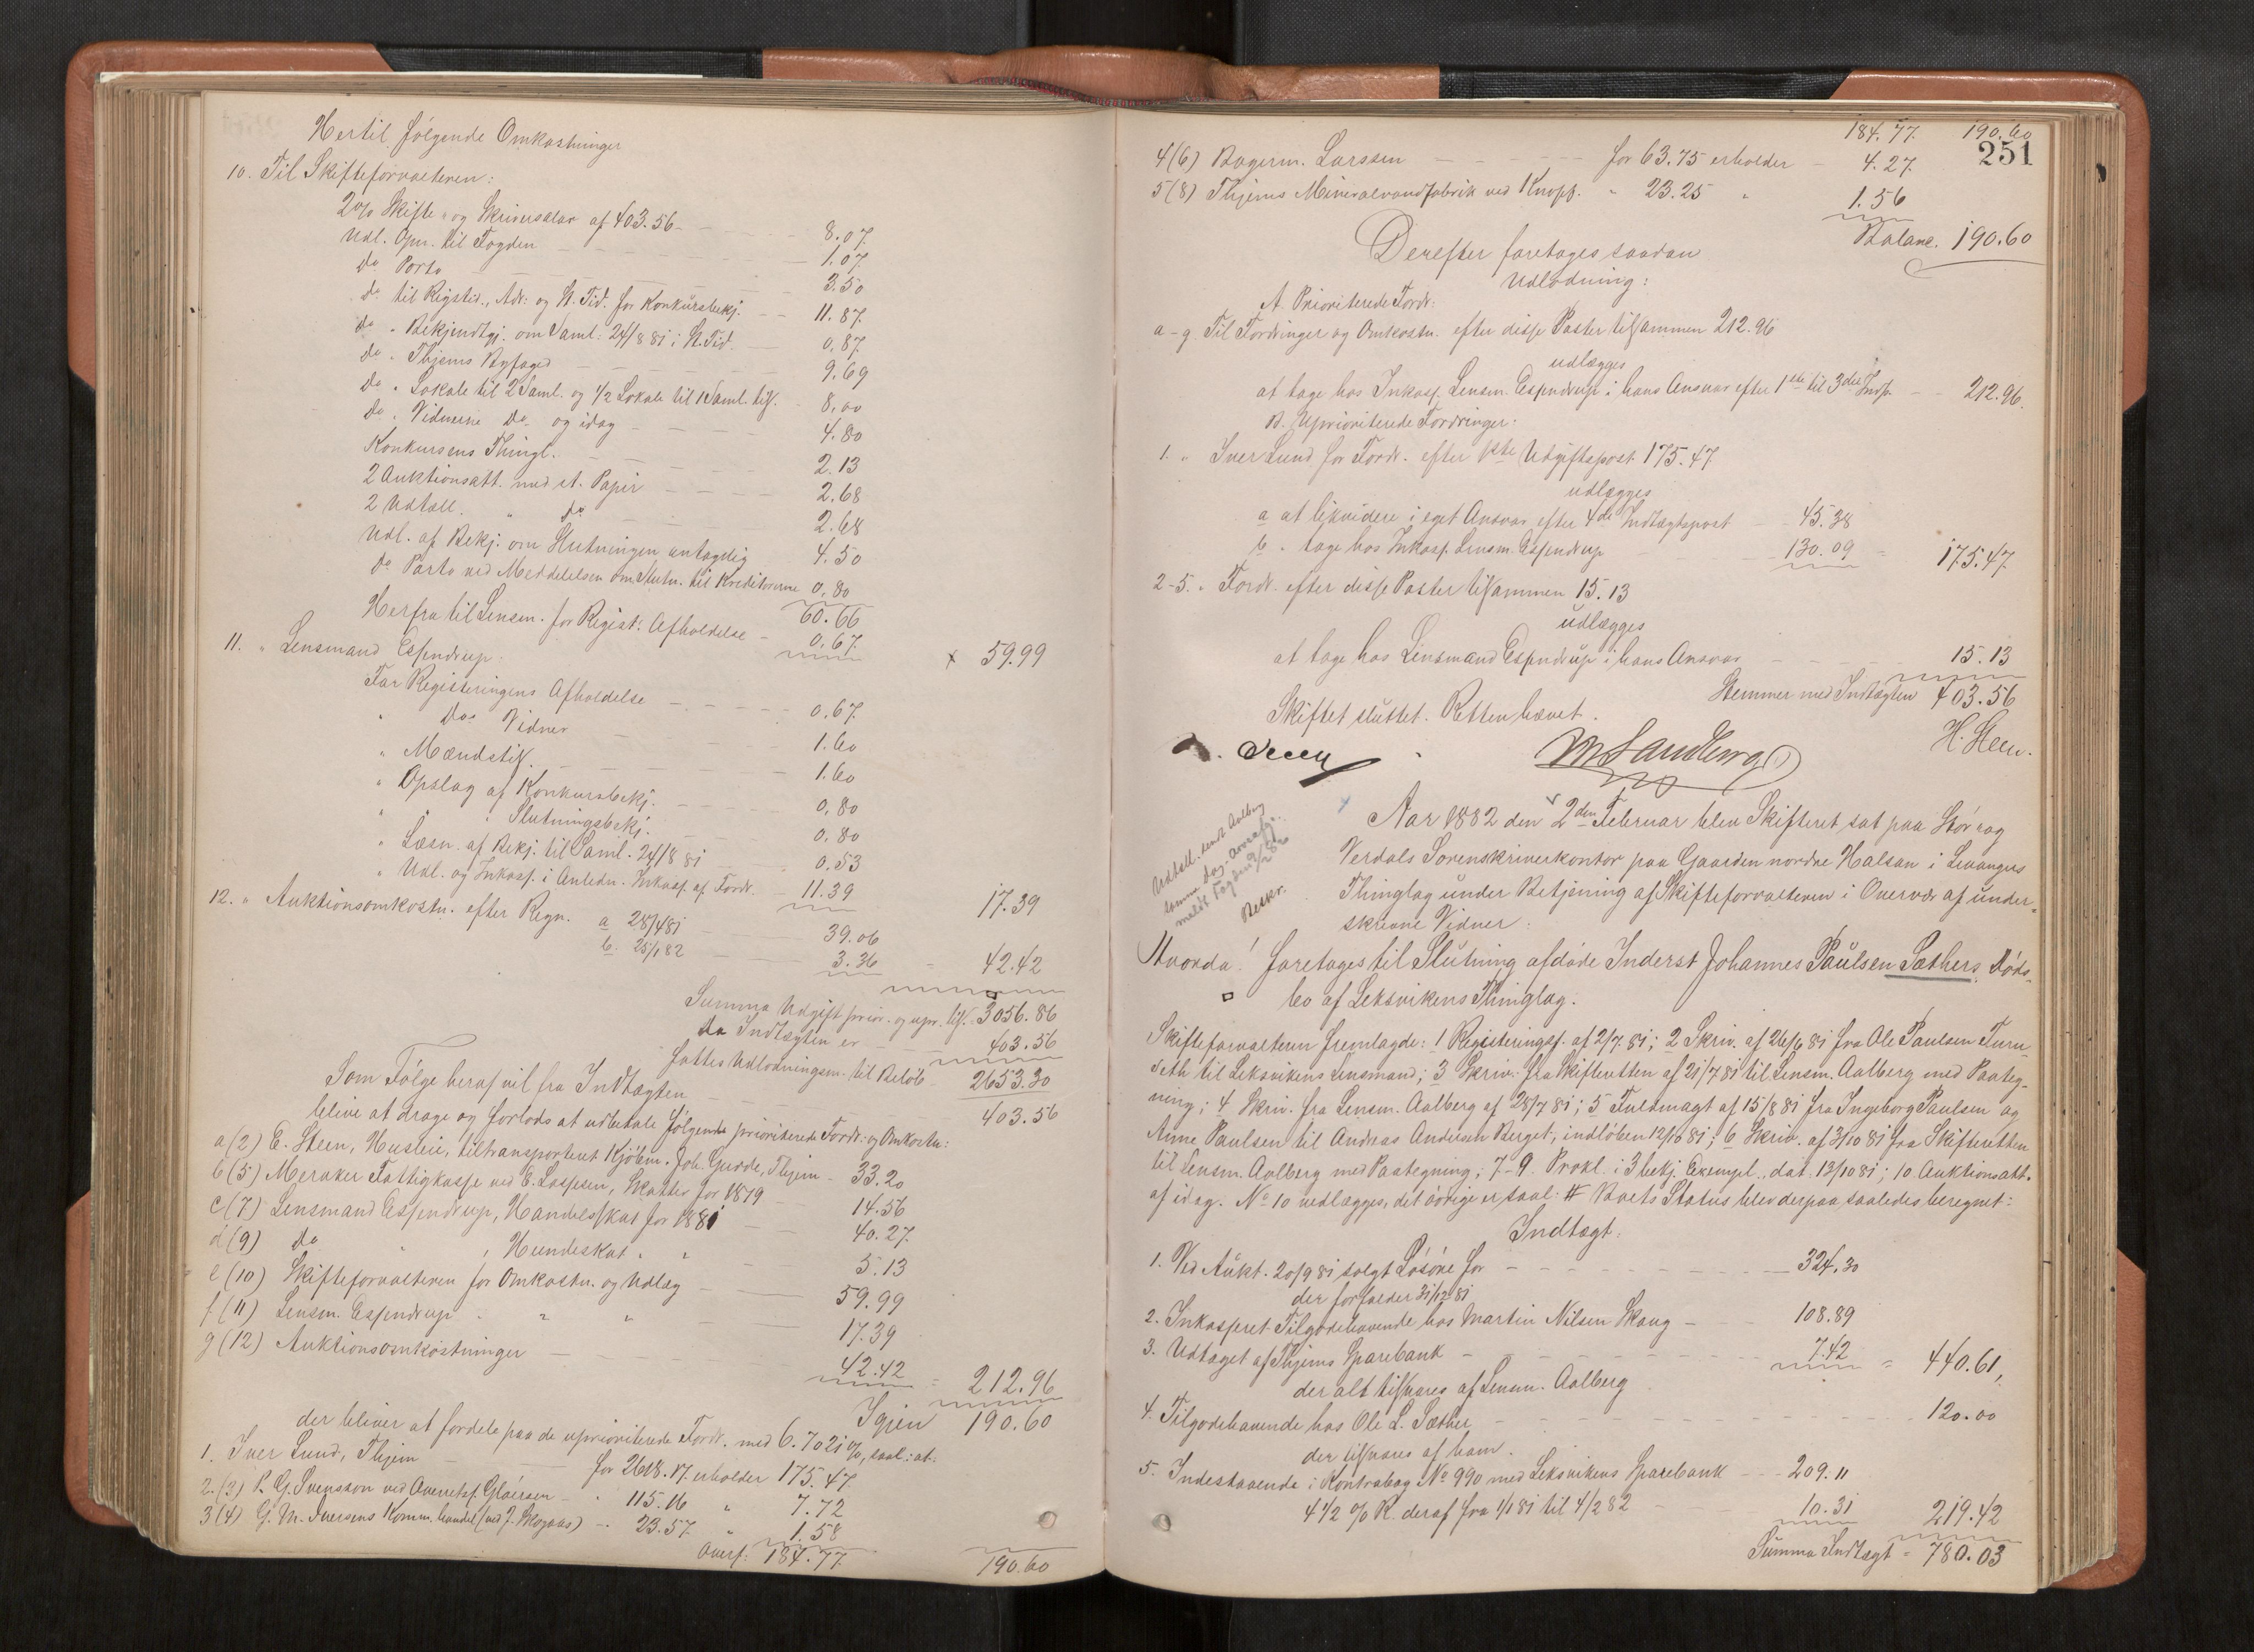 Hertil følgende Omkostninger
10. Til Skifteforvalteren:
2% Skifte- og Skriversalær af 403.56 - 8.07.
Udl. Opn. til Fogden - 1.07.
do Porto - 3.50
do til Rigstid., Adr: og N. Tid. for Konkursbekj. - 11.87.
do " Bekjendtgj. om Saml: 24/8 81 i N. Tid. - 0.87.
do " Thjems Byfoged - 9.69
do " Lokale til 2 Saml. og 1/2 Lokale til 1 Saml. tils. 8.00
do " Vidnerne do og idag - 4.80
Konkursens Thingl. - 2.13
2 Auktionsatt. med st. Papir - 2.68
2 Udtall. " do - 2.68
Udl. af Bekj. om Slutningen antagelig 4.50
do Porto ved Meddelelsen om Slutn. til Kreditorerne 0.80
60.66
Herfra til Lensm. for Regist: Afholdelse - 0.67. x 59.99
11. " Lensmand Espendrup.
For Registeringens Afholdelse - 0.67.
" dos Vidner - 1.60
" Mændstil. - 1.60
" Opslag af Konkursbekj. - 0.80
" " " Slutningsbekj. - 0.80
" Læsn. af Bekj. til Saml. 24/8 81 0.53
" Udl. og Inkass. i Anledn. Inkass. af Fordr. - 11.39 17.39
12. " Auktionsomkostn. efter Regn. a 28/4 81 - 39.06
b. 25/1 82 - 3.36 = 42.42
Summa Udgift prior. og upr. tils. 3056.86
Da Indtægten er - 403.56
fattes Udlodningsm. til Beløb - 2653.30
Som Følge heraf vil fra Indtægten - 403.56
blive at drage og forlods at udbetale følgende prioriterede Fordr: og Omkostn:
a (2) E. Steen, Husleie, tiltransporteret Kjøbm. Joh. Gudde, Thjem - 33.20
b (5) Meraker Fattigkasse ved E. Kaspersen, Skatter for 1879 14.56
c (7) Lensmand Espendrup, Handelsskat for 1881 - 40.27.
d (9) do " , Hundeskat " " - 5.13
e (10) Skifteforvalteren for Omkostn. og Udlæg - 59.99
f (11) Lensm. Espendrup " " " - 17.39
g (12) Auktionsomkostninger - 42.42 = 212.96
Igjen 190.60
der bliver at fordele paa de uprioriterede Fordr. med 6.7021 %, saal: at.
1. Iver Lund, Thjem - for 2618.17. erholder 175.47.
2. (3) P. G. Svensson ved Overretss. Gløersen - " 115.16 " 7.72
3 (4) G. M. Iversens Komm. handel (ved J. Skogaas) - " 23.57. " 1.58
Overf: 184.77. 190.60
184.77. 190.60
251
4 (6) Bagerm. Larssen - for 63.75 erholder - 4.27.
5 (8) Thjems Mineralvandfabrik ved Knoph. " 23.25 " 1.56
Balanc. 190.60
Derefter foretages saadan
Udlodning:
A. Prioriterede Fordr:
a - g. Til Fordringer og Omkostn. efter disse Poster tilsammen 212.96
udlægges
at tage hos Inkass. Lensm. Espendrup i hans Ansvar efter 1ste til 3die Indp. - 212.96.
B. Uprioriterede Fordringer:
1. " Iver Lund for Fordr. efter 1ste Udgiftspost 175.47.
udlægges
a at likvidere i eget Ansvar efter 4de Indtægtspost - 45.38
b " tage hos Inkass. Lensm. Espendrup - 130.09 = 175.47.
2-5. " Fordr. efter disse Poster tilsammen 15.13
udlægges
at tage hos Lensmand Espendrup i hans Ansvar - 15.13
Stemmer med Indtægten 403.56
Skiftet sluttet. Retten hævet.
H. Steen.
M Sandberg
Udtall. sendt Aalberg
samme Dag.
meldt Fogden 9/2 82
Beskr.
Aar 1882 den 2den Februar blev Skifteret sat paa Stør- og
Verdals Sorenskriverkontor paa Gaarden nordre Halsan i Levangers
Thinglag under Betjening af Skifteforvalteren i Overvær af under-
skrevne Vidner:
Hvorda! foretages til Slutning afdøde Inderst Johannes Paulsen Sæthers Døds-
bo af Leksvikens Thinglag.
Skifteforvalteren fremlagde: 1 Registeringsf. af 2/7 81; 2 Skriv. af 26/6 81 fra Ole Paulsen Furu-
seth til Leksvikens Lensmand; 3 Skriv: fra Skifteretten af 21/7 81 til Lensm. Aalberg med Paateg-
ning; 4. Skriv. fra Lensm. Aalberg af 28/7 81; 5 Fuldmagt af 15/8 81 fra Ingeborg Paulsen og
Anne Paulsen til Andreas Andersen Berget, indløben 12/10 81; 6 Skriv. af 3/10 81 fra Skifteretten
til Lensm. Aalberg med Paategning; 7-9. Prokl. i 3 bekj. Exempl., dat. 13/10 81; 10. Auktionsatt.
af idag. No 10 vedlægges, det øvrige er saal: # Boets Status blev derpaa saaledes beregnet:
Indtægt.
1. Ved Aukt. 20/9 81 solgt Løsøre for - 324.30
der forfalder 31/12 81
2. Inkasseret Tilgodehavende hos Martin Nilsen Skaug - 108.89
3. Udtaget af Thjems Sparebank - 7.42 = 440.61,
der alt tilsvares af Lensm. Aalberg
4. Tilgodehavende hos Ole L. Sæther - 120.00
der tilsvares af ham.
5. Indestaaende i Kontrabog No 990 med Leksvikens Sparebank - 209.11
4 1/2 % R. deraf fra 1/1 81 til 4/2 82 - 10.31 219.42
Summa Indtægt = 780.03